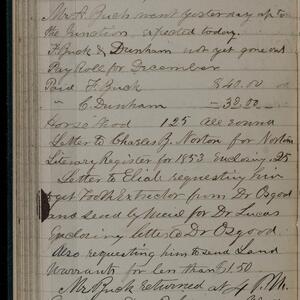 Mr A. Buck went yesterday up to
the Junction expected today.
F. Buck & Dunham not yet gone out
Pay Roll for December
Paid F. Buck $40.00
" C. Dunham — 32.00
Horse shod 1.25 all round
Letter to Charles B. Norton for Norton
Literary Register for 1853 Enclosing .25
Letter to Eliab requesting him
get Tooth Extractor from Dr Osgood
and send by Weed for Dr Lucas
Enclosing letter to Dr Osgood.
Also requesting him to send Land
Warrants for less than $1.50.
Mr Buck returned at 4 P.M.